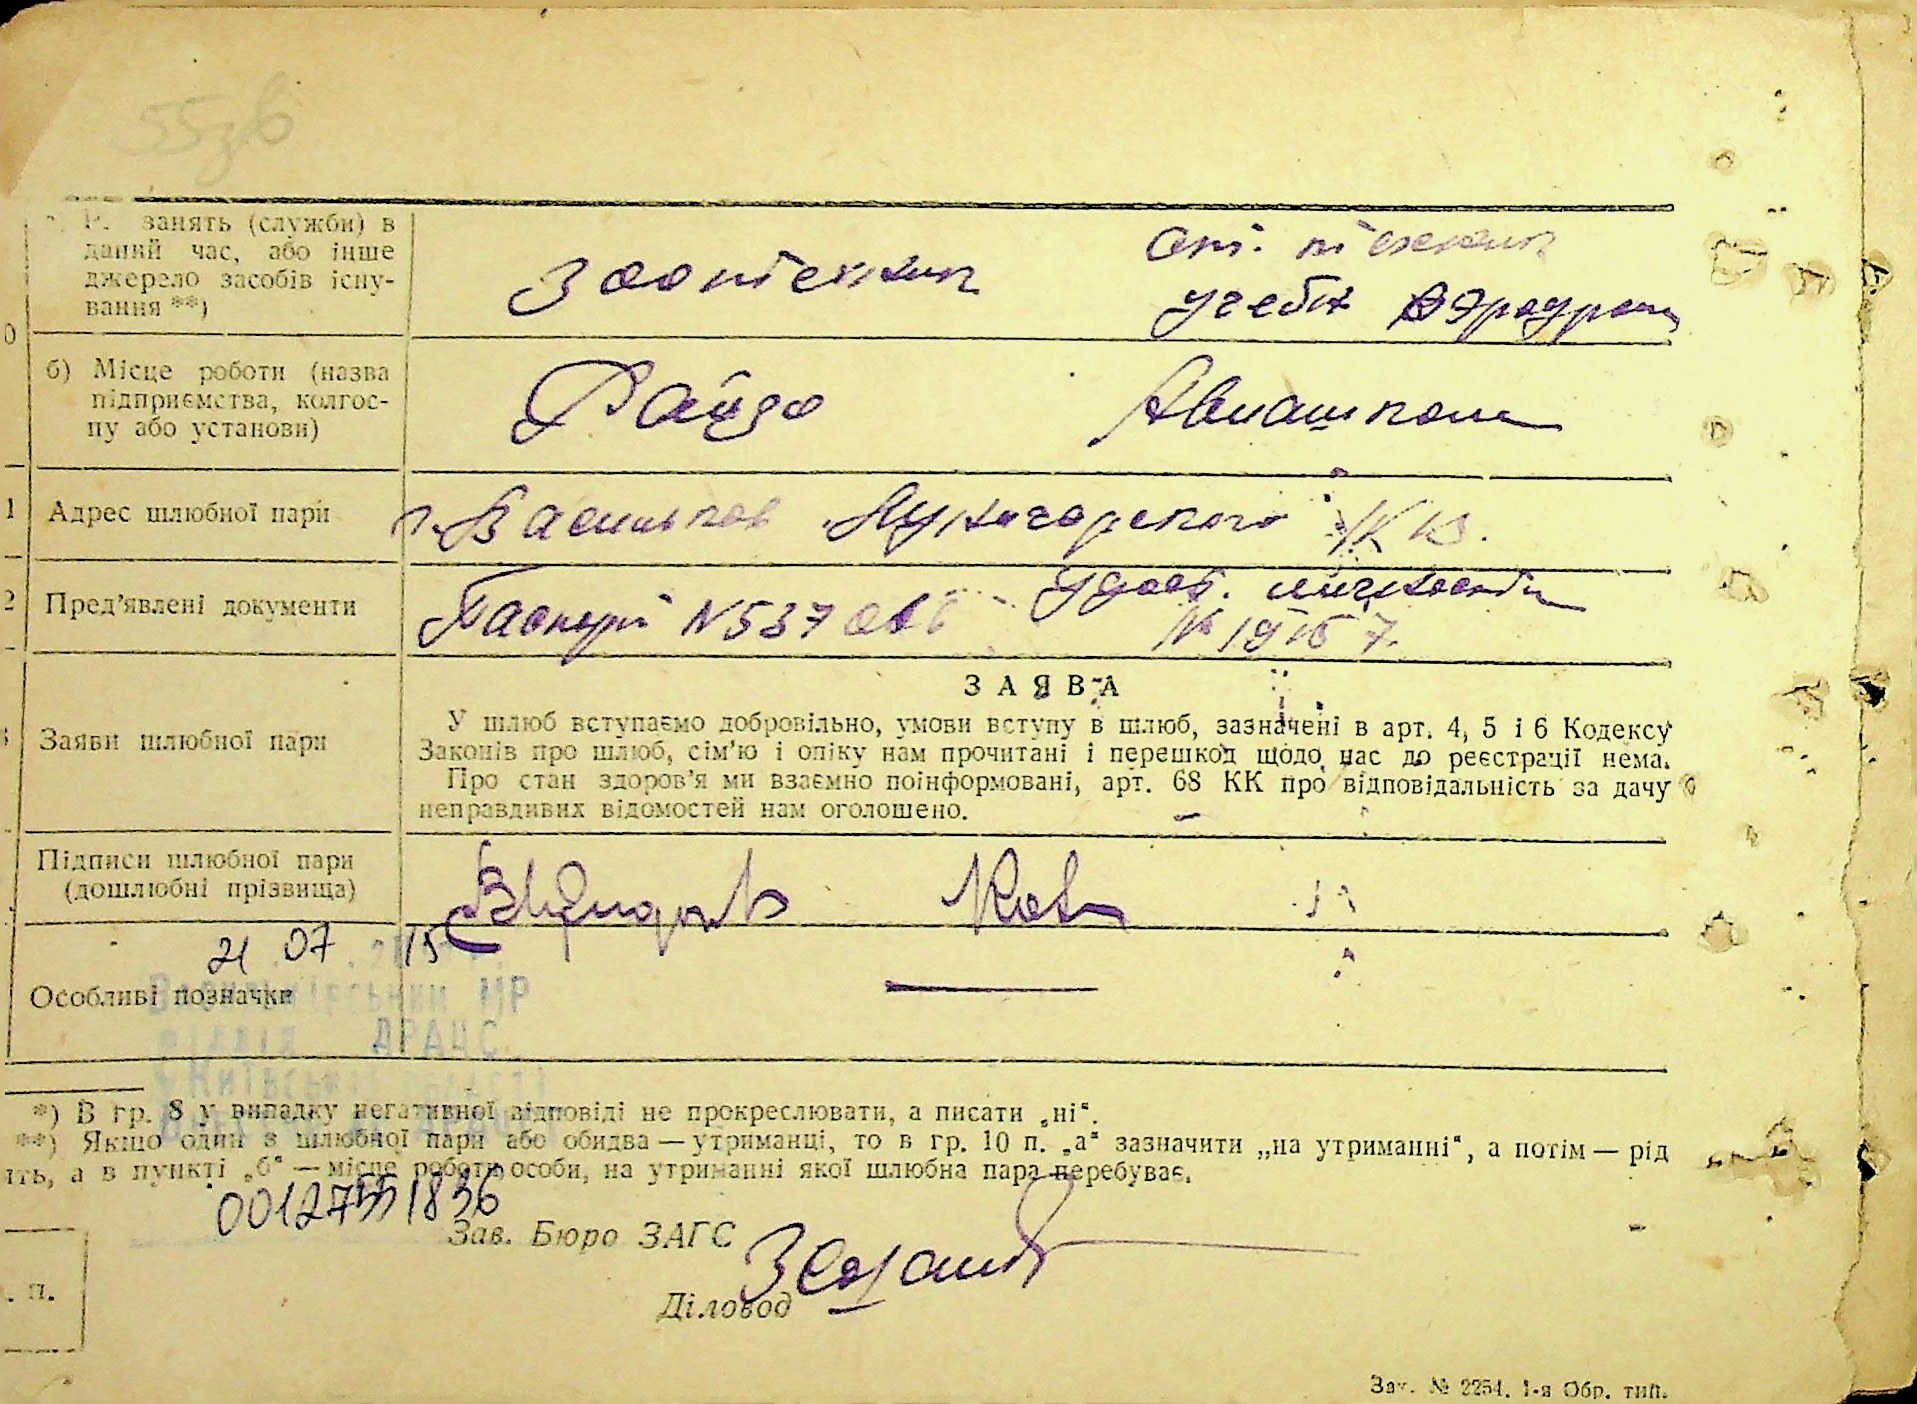 занять (служби) в
даний час, або інше
джерело засобів існу-
вання **)
Зоотехник
техник
учебн Аэродром
0
б) Місце роботи (назва
підприємства, колгос-
пу або установи)
Райзо
Авиашкола
1
Адрес шлюбної пари
г. Васильков Луначарского
2
Пред’явлені документи
Паспорт N 537
Удост. личности
№
ЗАЯВА
Заяви шлюбної пари
У шлюб вступаємо добровільно, умови вступу в шлюб, зазначені в арт. 4, 5 і 6 Кодексу
Законів про шлюб, сім’ю і опіку нам прочитані і перешкод щодо нас до реєстрації нема.
Про стан здоров’я ми взаємно поінформовані, арт. 68 КК про відповідальність за дачу
неправдивих відомостей нам оголошено.
Підписи шлюбної пари
(дошлюбні прізвища)
21 07 15
Особливі позначки
Васильківський МР
відділ ДРАЦС
Київській області
*) В гр. 8 у випадку негативної відповіді не прокреслювати, а писати „ні“.
**) Якщо один з шлюбної пари або обидва — утриманці, то в гр. 10 п. „а“ зазначити „на утриманні“, а потім — рід
ять, а в пункті „б“ — місце роботи особи, на утриманні якої шлюбна пара перебуває.
Зав. Бюро ЗАГС
Діловод
. П.
Зах. № 2254. 1-я Обр. тип.